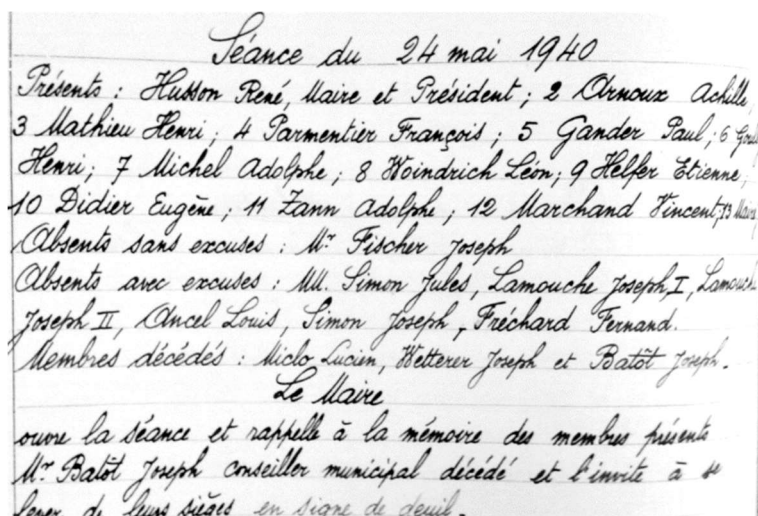 Séance du 24 mai 1940
Présents : Husson René, Maire et Président ; 2 Arnoux Achille,
3 Mathieu Henri ; 4 Parmentier François ; 5 Gander Paul ; 6
Henri ; 7 Michel Adolphe ; 8 Woindrich Léon ; 9 Helfer Etienne ;
10 Didier Eugène ; 11 Zann Adolphe ; 12 Marchand Vincent ; 13
Absents sans excuses : Mr Fischer Joseph
Absents avec excuses : MM. Simon Jules, Lamouche Joseph I, Lamouch
Joseph II, Ancel Louis, Simon Joseph, Fréchard Fernand.
Membres décédés : Miclo Lucien, Wetterer Joseph et Batôt Joseph.
Le Maire
ouvre la séance et rappelle à la mémoire des membres présents
Mr Batôt Joseph conseiller municipal décédé et l'invite à se
lever de leurs sièges en signe de deuil.